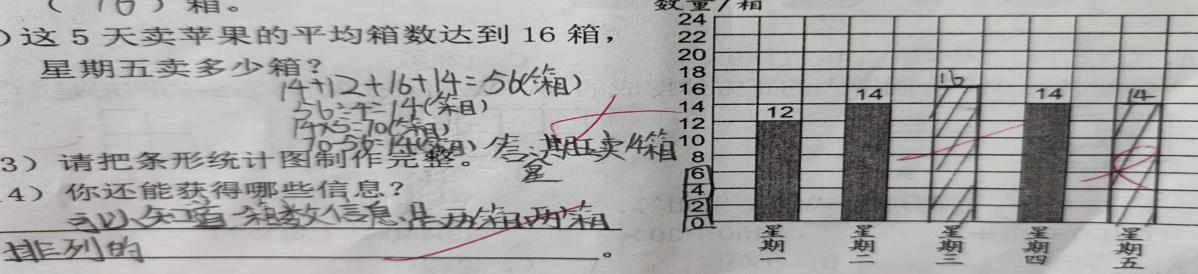 (16)箱。
)这5天卖苹果的平均箱数达到16箱,
星期五卖多少箱?
14+12+16+14=56(箱)
56÷4=14(箱)
14×5=70(箱)
70-56=14(箱) 答:星期五卖14箱
3)请把条形统计图制作完整。
4)你还能获得哪些信息?
可以知道箱数信息是两箱两箱
排列的。
数量/箱
24
22
20
18
16
14
12
10
8
6
4
2
0
12
14
16
14
14
星期一
星期二
星期三
星期四
星期五